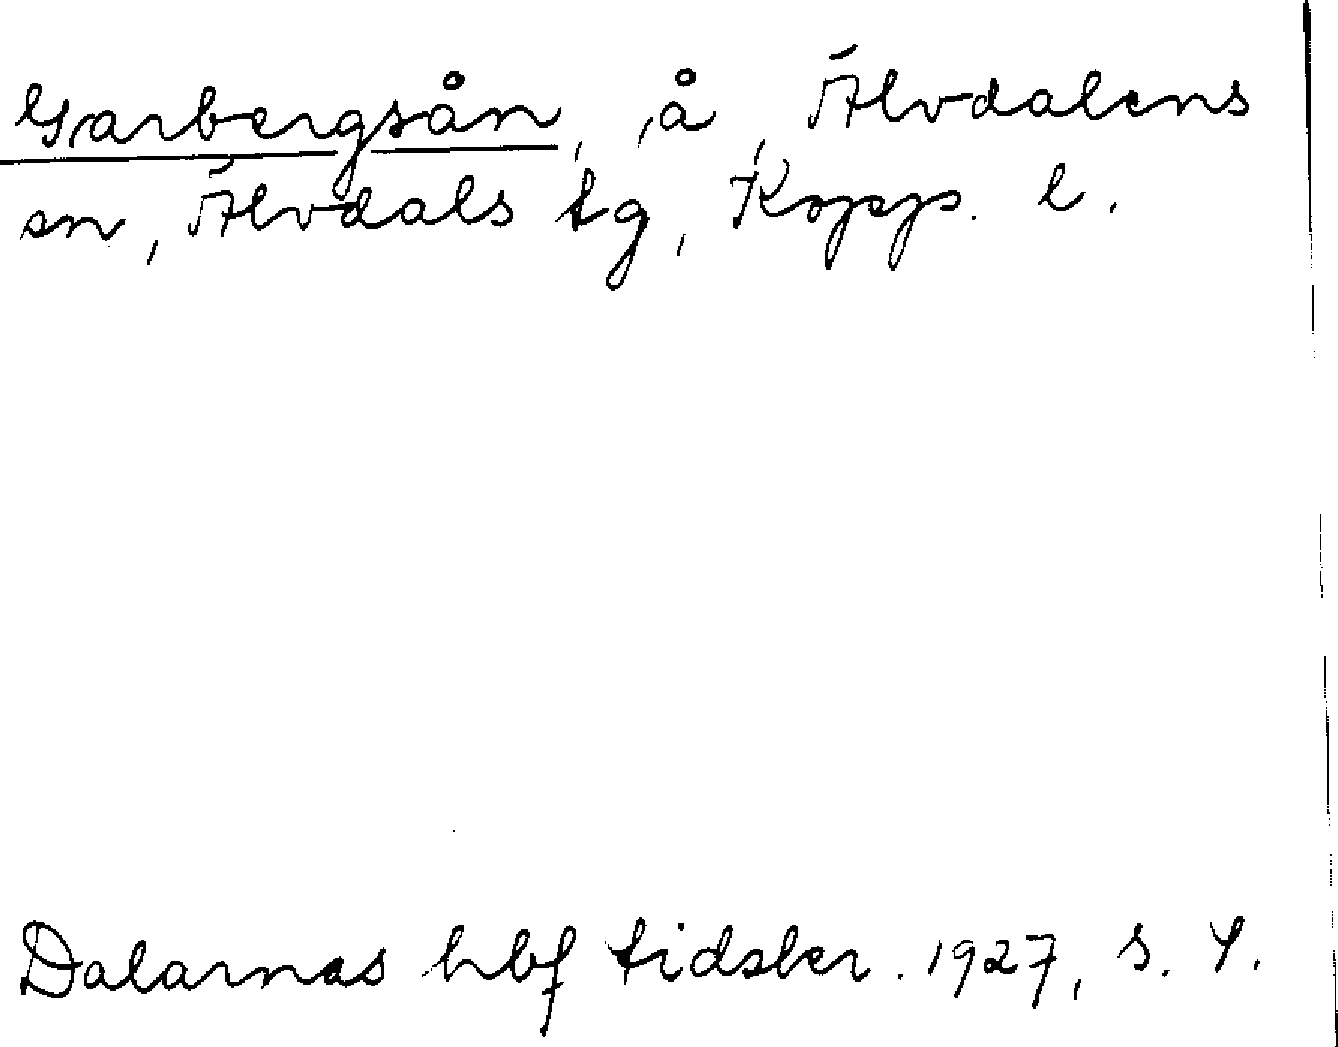 Garbergsån, å, Älvdalens
sn, Älvdals tg, Kopp. l.
Dalarnas hbf tidskr. 1927, s. 9.